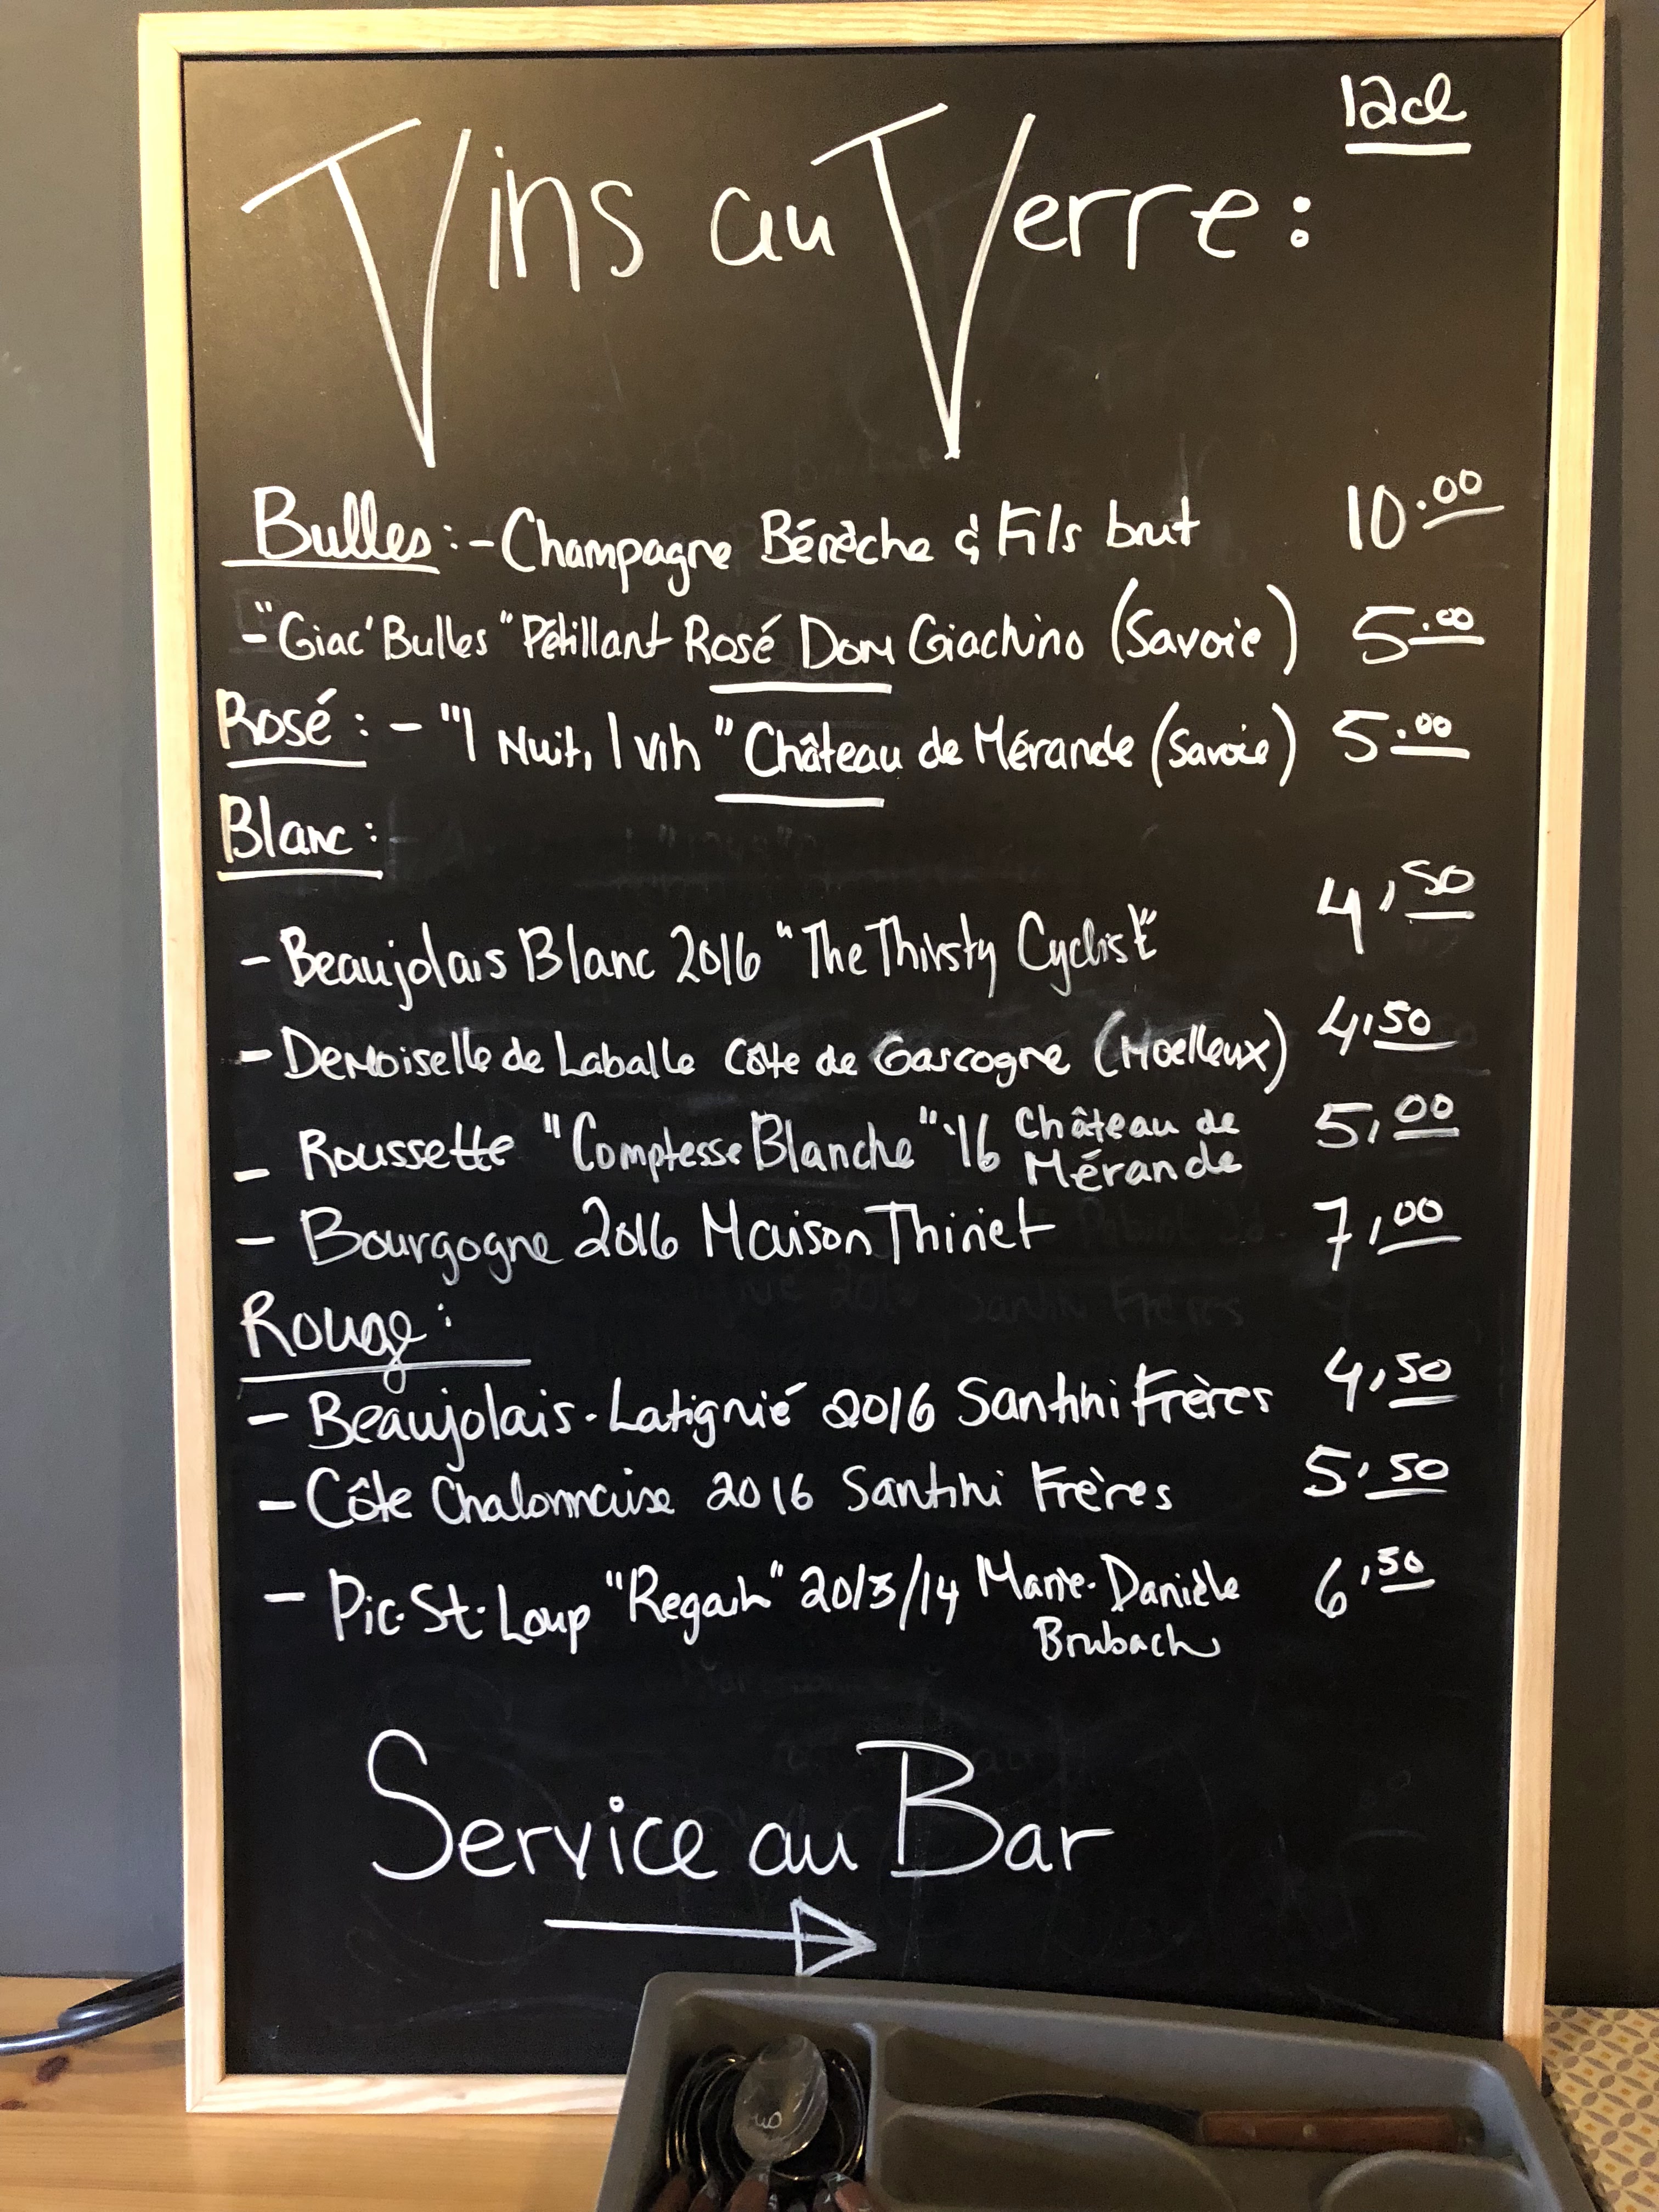 12cl
Vins au Verre :
Bulles : - Champagne Bérèche & Fils brut 10.00
- "Giac'Bulles" Pétillant Rosé Dom Giachino (Savoie) 5.00
Rosé : - "1 Nuit, 1 vin" Château de Mérande (Savoie) 5.00
Blanc :
- Beaujolais Blanc 2016 "The Thirsty Cyclist" 4,50
- Demoiselle de Laballe Côte de Gascogne (Moelleux) 4,50
- Roussette "Comptesse Blanche" '16 Château de Mérande 5,00
- Bourgogne 2016 Maison Thiriet 7,00
Rouge :
- Beaujolais-Latignié 2016 Santini Frères 4,50
- Côte Chalonnaise 2016 Santini Frères 5,50
- Pic-St-Loup "Regain" 2013/14 Marie-Danièle Brubach 6,50
Service au Bar